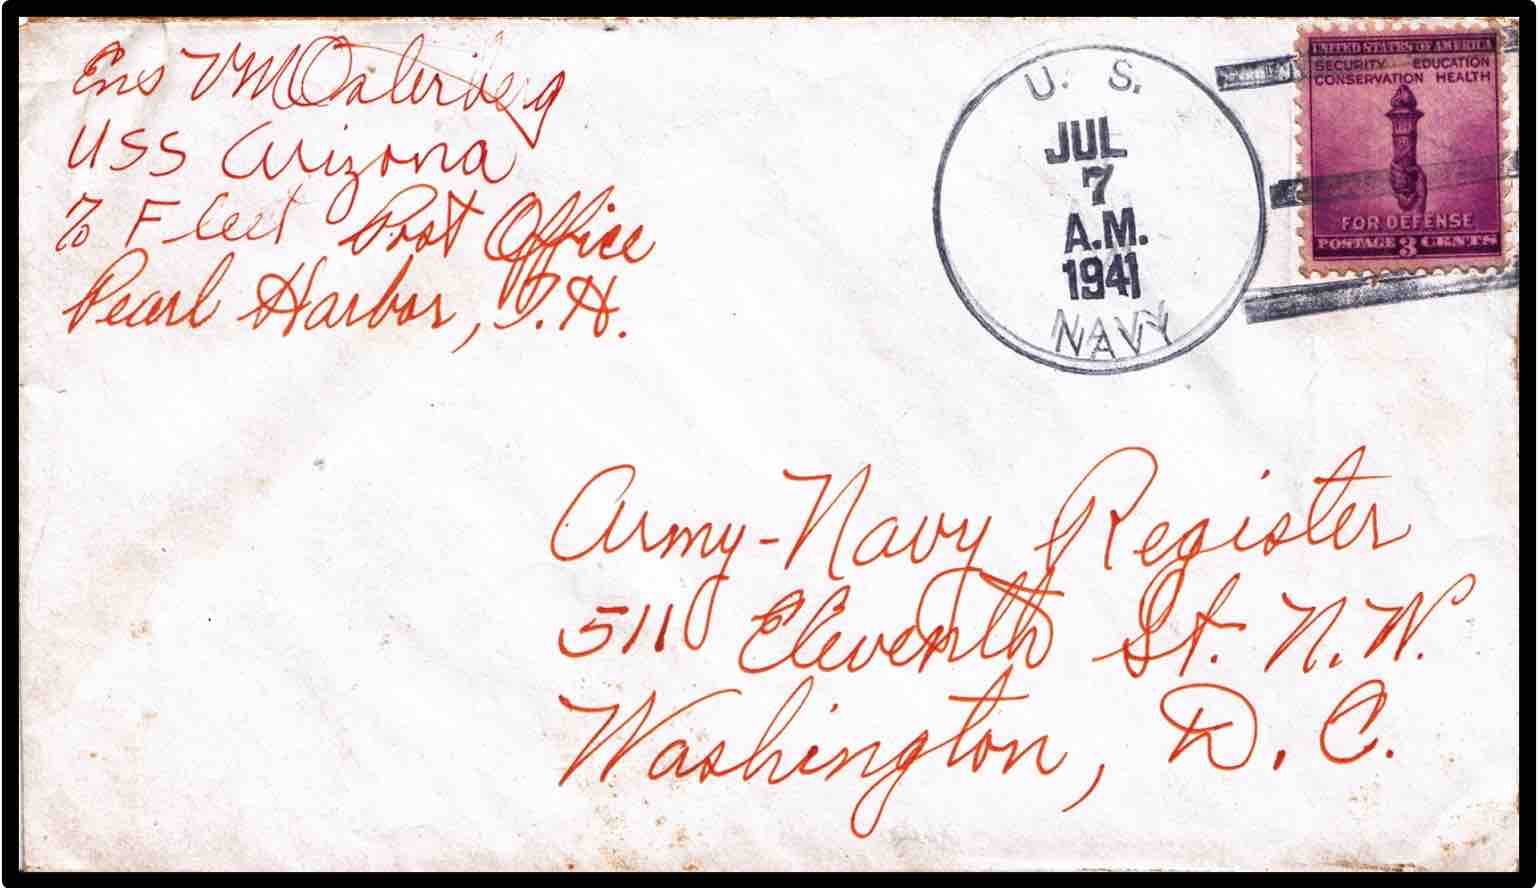 Ens V M Osterberg
USS Arizona
% Fleet Post Office
Pearl Harbor, T.H.
U. S.
JUL
7
A.M.
1941
NAVY
UNITED STATES OF AMERICA
SECURITY EDUCATION
CONSERVATION HEALTH
FOR DEFENSE
POSTAGE 3 CENTS
Army-Navy Register
511 Eleventh St. N.W.
Washington, D.C.